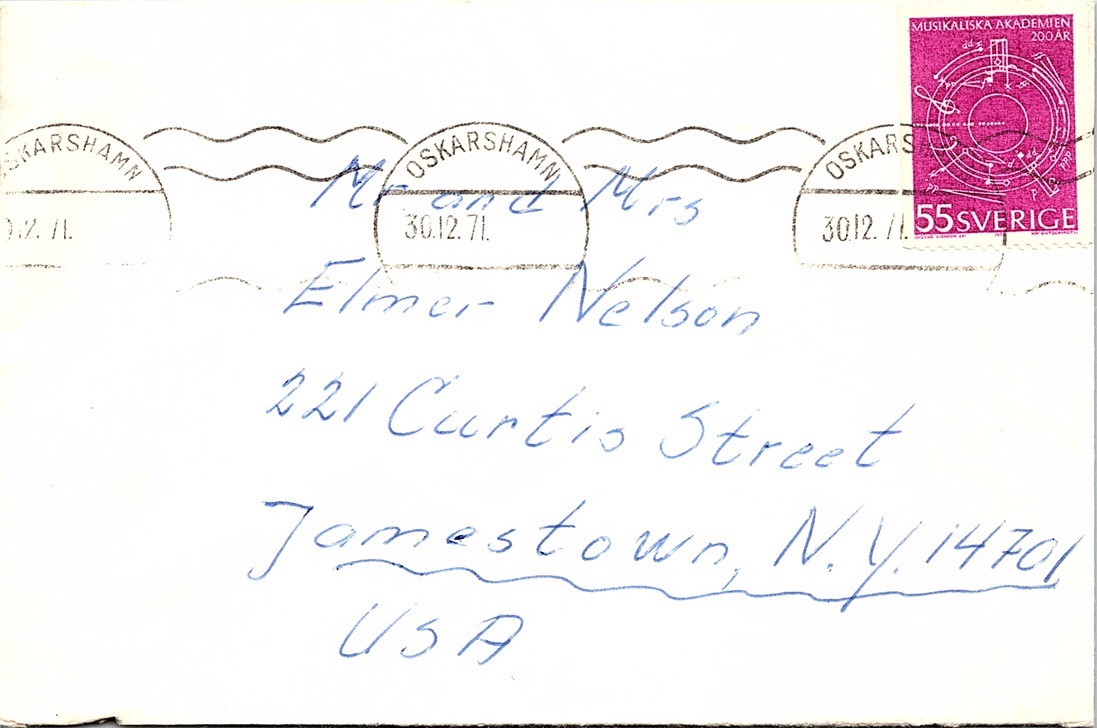 MUSIKALISKA AKADEMIEN
200 ÅR
55 SVERIGE
SKARSHAMN
OSKARSHAMN
OSKARS
.12.71.
30.12.71.
30.12.71.
Mr and Mrs
Elmer Nelson
221 Curtis Street
Jamestown, N.Y. 14701
USA